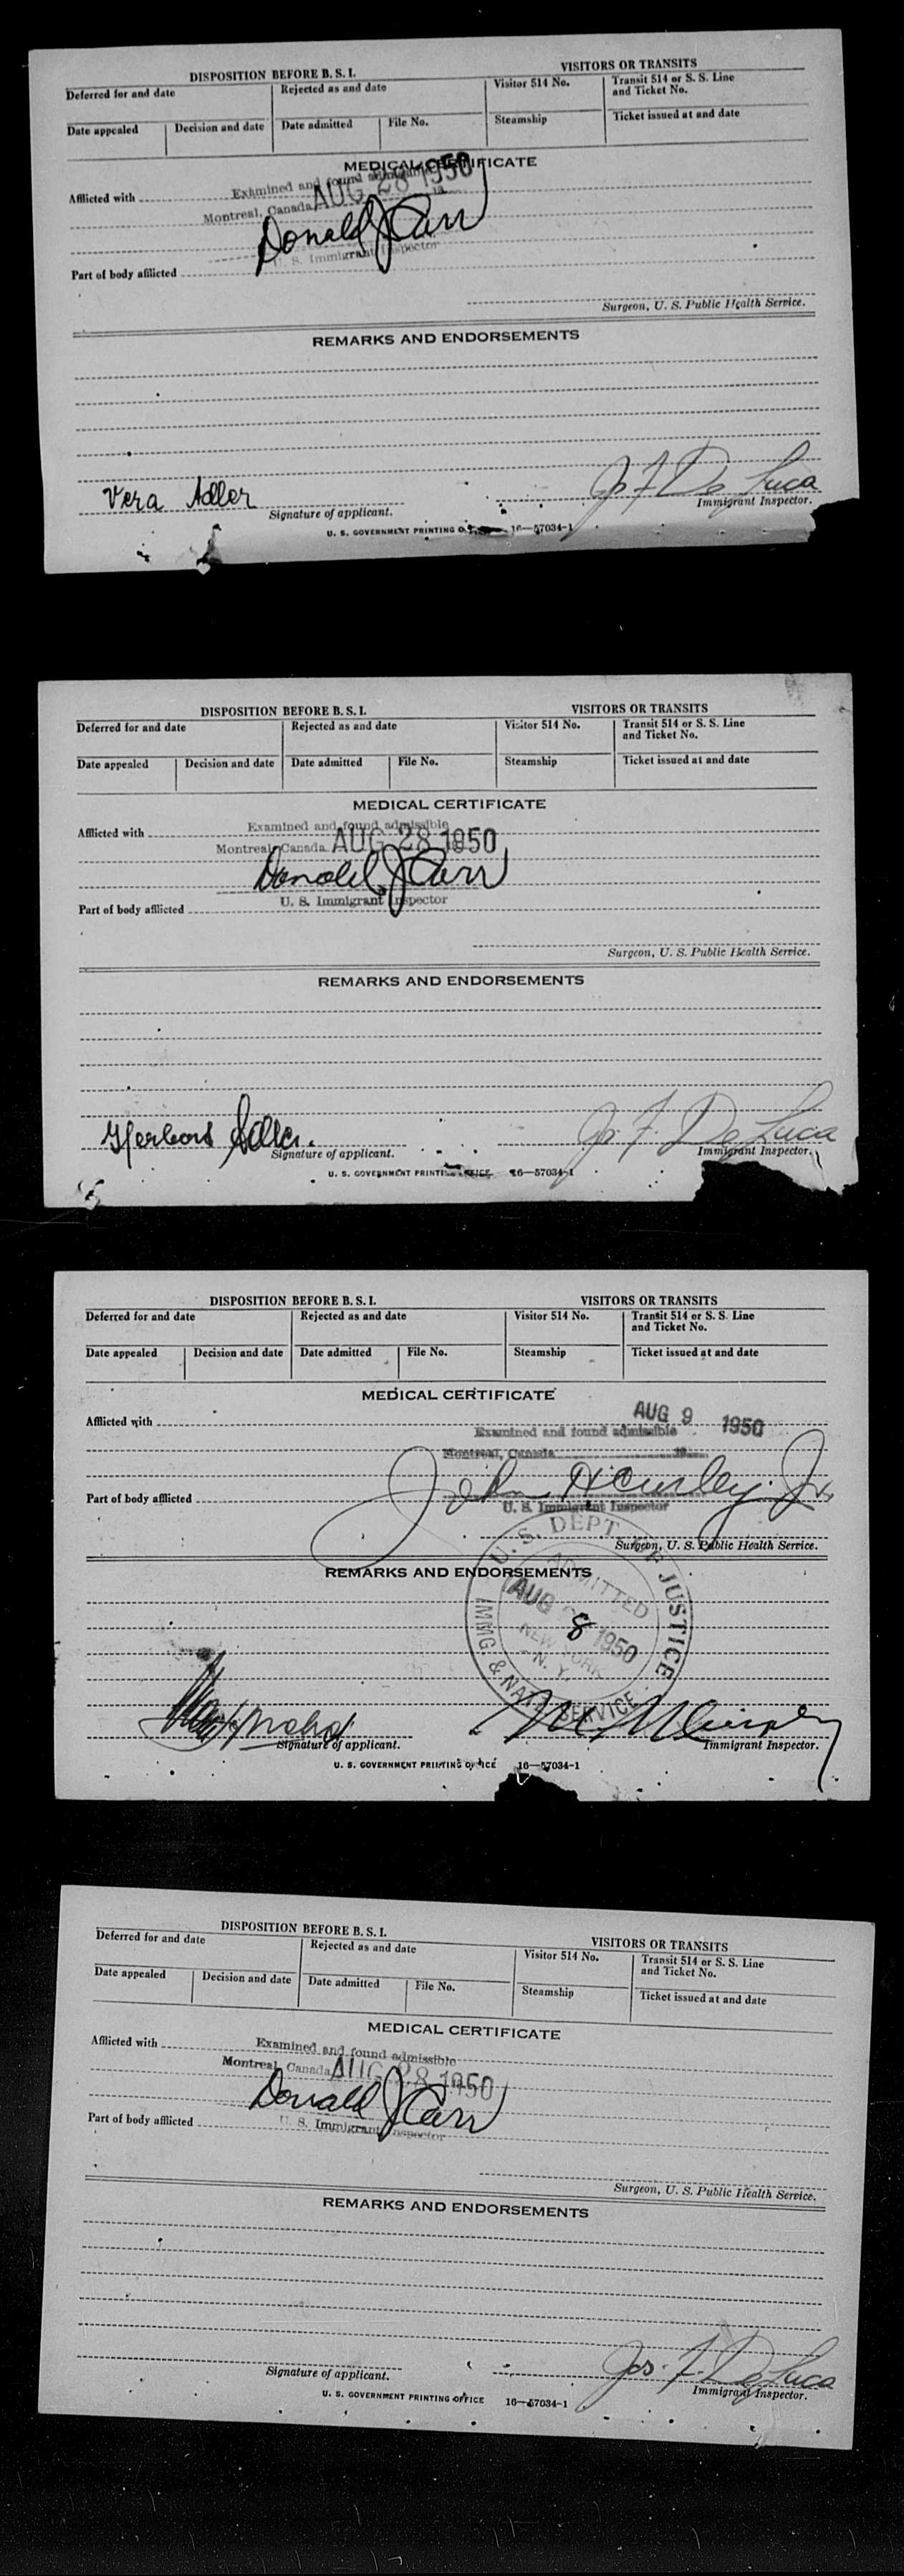 DISPOSITION BEFORE B. S. I. VISITORS OR TRANSITS
Deferred for and date Rejected as and date Visitor 514 No. Transit 514 or S. S. Line and Ticket No.
Date appealed Decision and date Date admitted File No. Steamship Ticket issued at and date
MEDICAL CERTIFICATE
Afflicted with
Examined and found admissible
Montreal, Canada AUG 28 1950
Donald J Carr
U. S. Immigrant Inspector
Part of body afflicted
Surgeon, U. S. Public Health Service.
REMARKS AND ENDORSEMENTS
Vera Adler Jos F De Luca
Signature of applicant. Immigrant Inspector.
U. S. GOVERNMENT PRINTING 16—57034-1
DISPOSITION BEFORE B. S. I. VISITORS OR TRANSITS
Deferred for and date Rejected as and date Visitor 514 No. Transit 514 or S. S. Line and Ticket No.
Date appealed Decision and date Date admitted File No. Steamship Ticket issued at and date
MEDICAL CERTIFICATE
Afflicted with
Examined and found admissible
Montreal, Canada AUG 28 1950
Donald J Carr
U. S. Immigrant Inspector
Part of body afflicted
Surgeon, U. S. Public Health Service.
REMARKS AND ENDORSEMENTS
Herbert Adler. Jos. F. De Luca
Signature of applicant. Immigrant Inspector.
U. S. GOVERNMENT PRINTING OFFICE 16—57034-1
DISPOSITION BEFORE B. S. I. VISITORS OR TRANSITS
Deferred for and date Rejected as and date Visitor 514 No. Transit 514 or S. S. Line and Ticket No.
Date appealed Decision and date Date admitted File No. Steamship Ticket issued at and date
MEDICAL CERTIFICATE
Afflicted with
AUG 9 1950
Examined and found admissible
Montreal, Canada 19
John H Curley. Jr.
U. S. Immigrant Inspector
Part of body afflicted
Surgeon, U. S. Public Health Service.
REMARKS AND ENDORSEMENTS
U. S. DEPT. OF JUSTICE
ADMITTED
AUG 8 1950
NEW YORK
N. Y.
IMMG. & NATZ. SERVICE
Signature of applicant. Immigrant Inspector.
U. S. GOVERNMENT PRINTING OFFICE 16—57034-1
DISPOSITION BEFORE B. S. I. VISITORS OR TRANSITS
Deferred for and date Rejected as and date Visitor 514 No. Transit 514 or S. S. Line and Ticket No.
Date appealed Decision and date Date admitted File No. Steamship Ticket issued at and date
MEDICAL CERTIFICATE
Afflicted with
Examined and found admissible
Montreal, Canada AUG 28 1950
Donald J Carr
U. S. Immigrant Inspector
Part of body afflicted
Surgeon, U. S. Public Health Service.
REMARKS AND ENDORSEMENTS
Jos. F. De Luca
Signature of applicant. Immigrant Inspector.
U. S. GOVERNMENT PRINTING OFFICE 16—57034-1